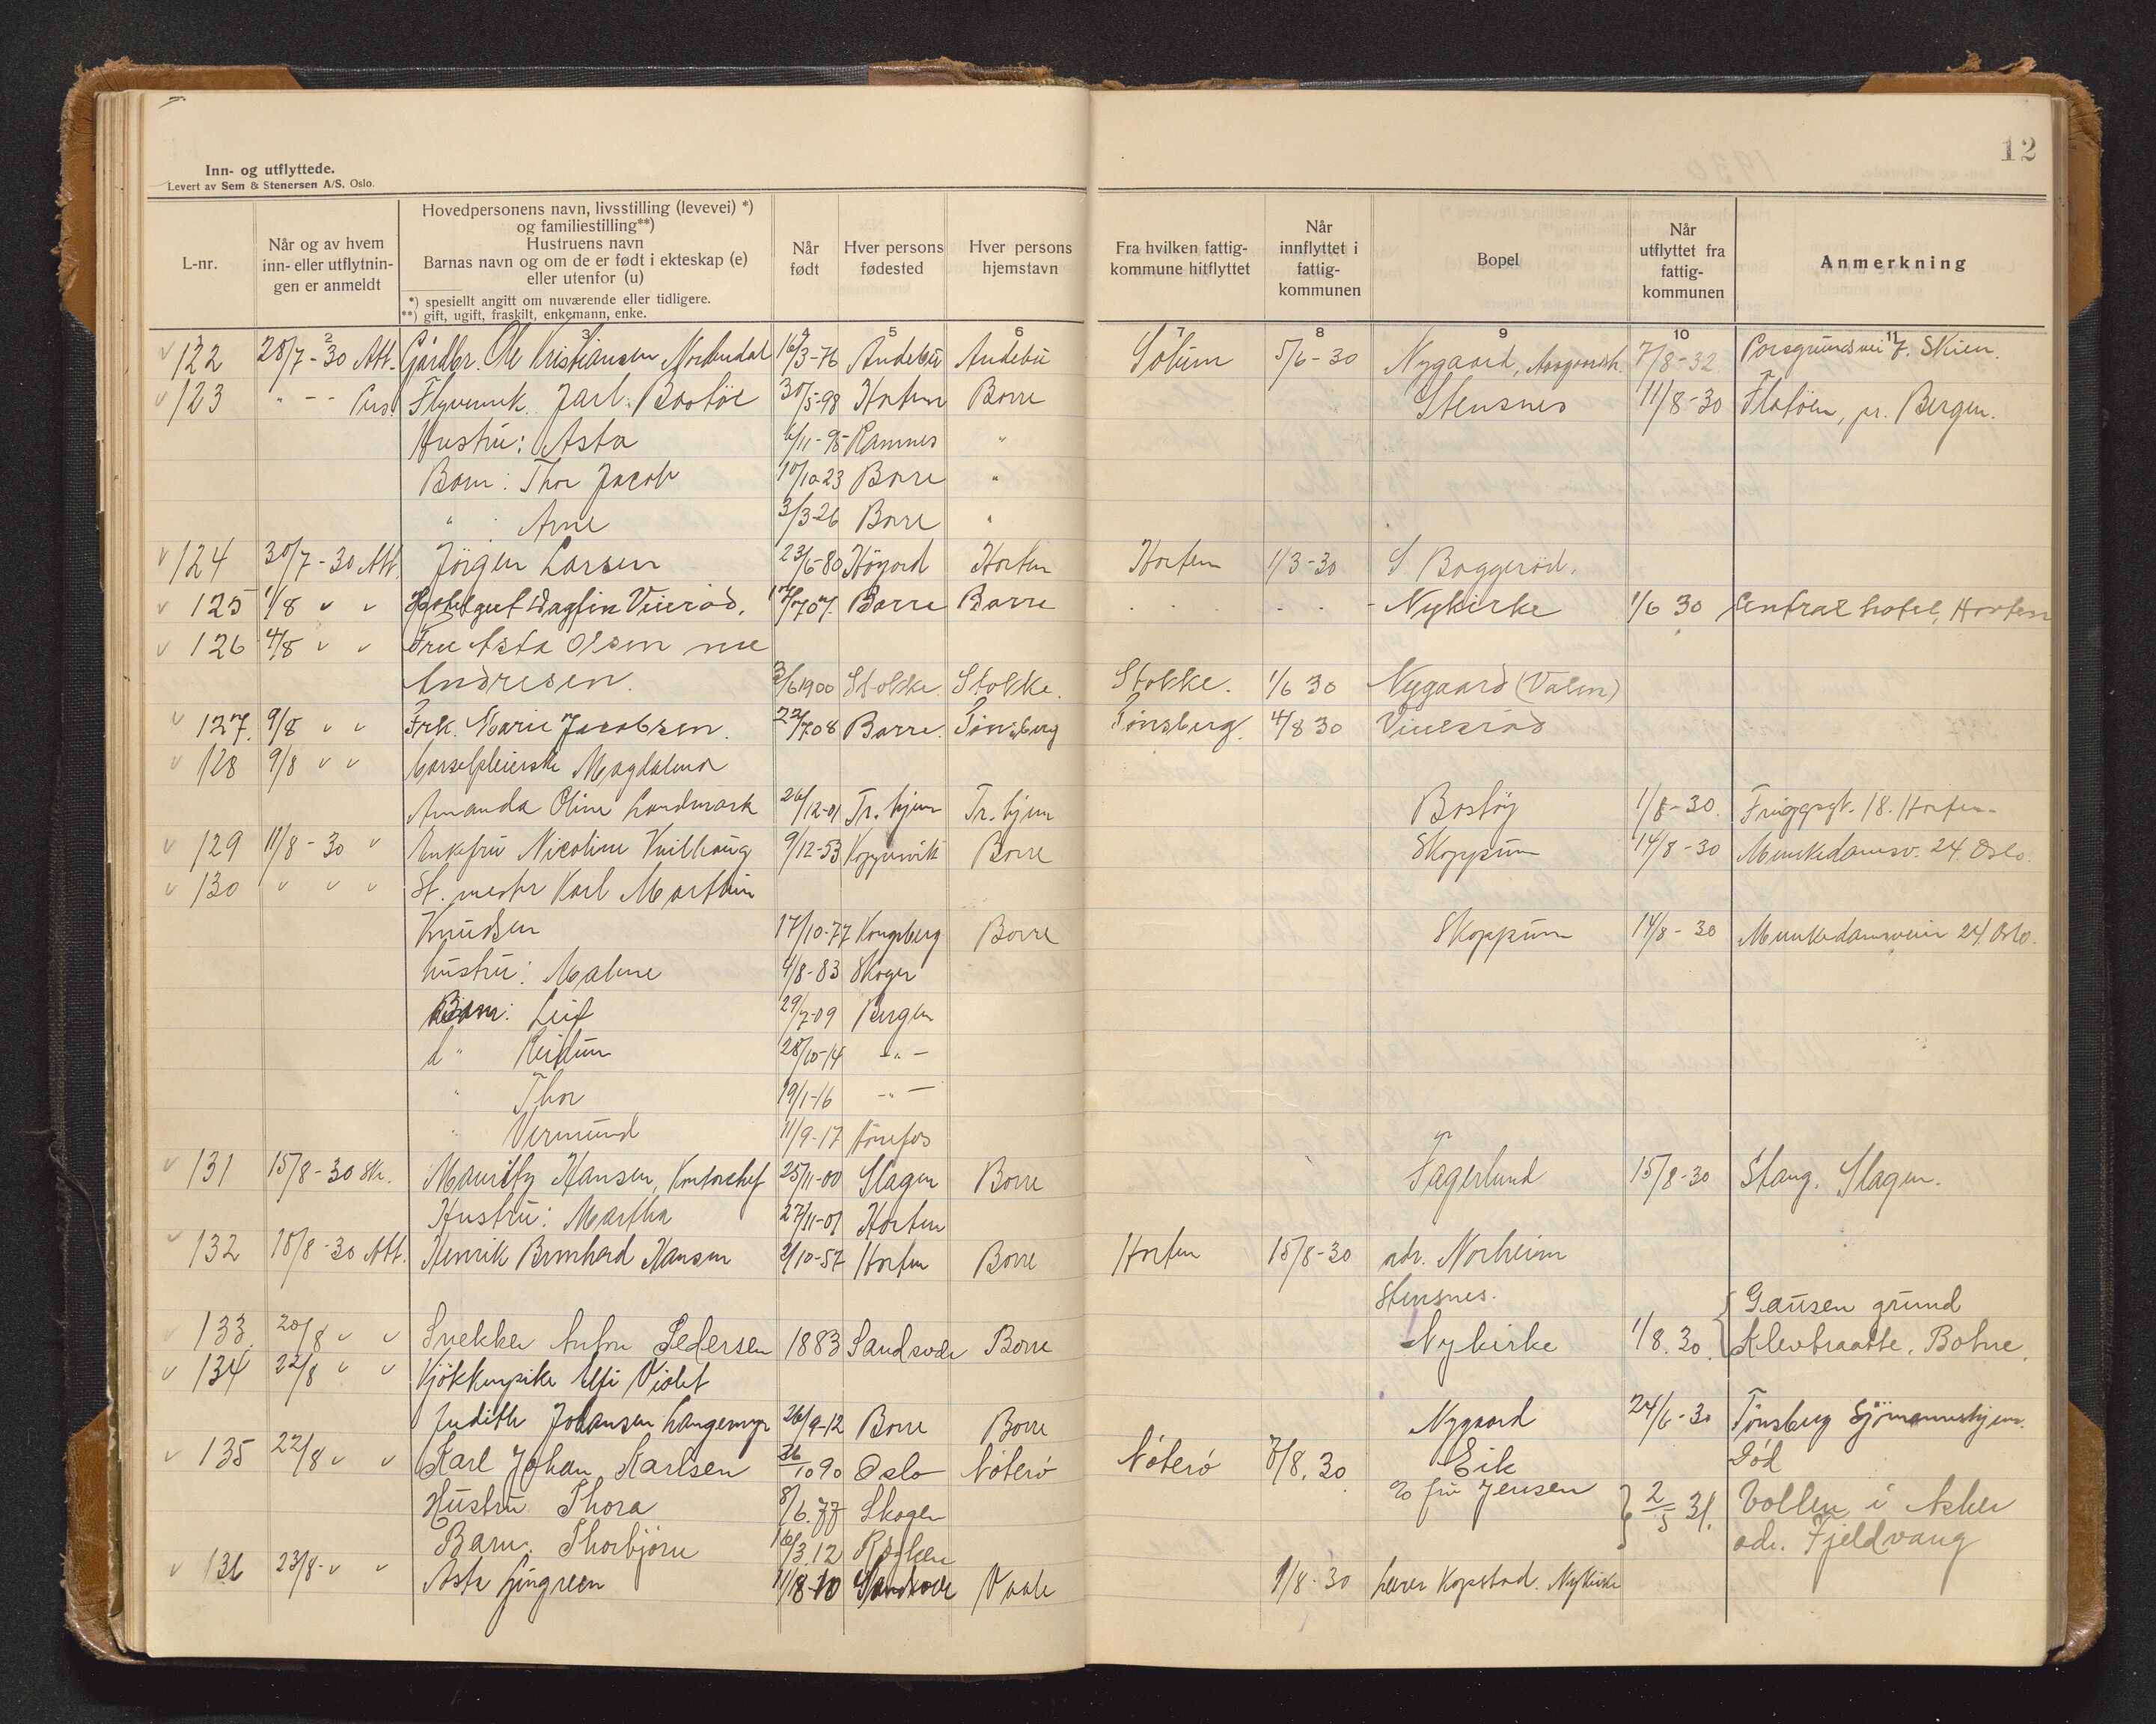 12
Inn- og utflyttede.
Levert av Sem & Stenersen A/S. Oslo.
L-nr.
Når og av hvem inn- eller utflytnin-gen er anmeldt
Hovedpersonens navn, livsstilling (levevei) *) og familiestilling**)
Hustruens navn
Barnas navn og om de er født i ekteskap (e) eller utenfor (u)
*) spesiellt angitt om nuværende eller tidligere.
**) gift, ugift, fraskilt, enkemann, enke.
Når født
Hver persons fødested
Hver persons hjemstavn
Fra hvilken fattig-kommune hitflyttet
Når innflyttet i fattig-kommunen
Bopel
Når utflyttet fra fattig-kommunen
Anmerkning
2 3 5 6 7 8 9 10 11
122 28/7-30 Att. Gårdbr. Ole Kristiansen Nordendal 16/3-76 Andebu Andebu Solum 5/6-30 Nygaard, 7/8-32 Porsgrundsvei 7. Skien.
123 " - - Flyverm. Jarl Bastöe 30/5-98 Horten Borre Stensnes 11/8-30 Flatöen, pr. Bergen.
Hustru: Asta 6/11-95 Ramnes "
Barn: Thor Jacob 10/10-23 Borre "
" Arne 3/3-26 Borre "
124 30/7-30 Att. Jörgen Larsen 23/6-80 Höyord Horten Horten 1/3-30 S. Boggeröd.
125 1/8 " " Hotelgut Dagfin Viuerød. 17/7 07. Borre Borre - Nykirke 1/6 30 Sentral hotel, Horten
126 4/8 " " Fru Asta Olsen nee
Andresen. 3/6 1900 Stokke Stokke. Stokke. 1/6 30 Nygaard (Valen)
127. 9/8 " " Frk. Marie Jacobsen. 22/7 08 Borre. Tønsberg Tønsberg. 4/8 30 Viulsrød
128 9/8 " " Barselpleierske Magdalena
Amanda Oline Landmark 26/12-01 Tr. hjem Tr. hjem Bastöy 1/8-30. Friggsgt. 18. Horten
129 11/8-30 " Enkefru Nicoline Kvilhaug 9/12-53 Koppervik Borre Skoppum 14/8-30 Munkedamsv. 24 Oslo.
130 " " " St. mester Karl Marthin
Knudsen 17/10-77 Kongsberg Borre Skoppum 14/8-30 Munkedamsveien 24. Oslo.
hustru: Malene 4/8-83 Skoger
Barn: Leif 29/7-09 Bergen
d " Reidun 28/10-14 -"-
" Thor 19/1-16 -"-
" Vermund 11/9-17 Hönefos
131 15/8-30 Sk. Mauritz Hansen, Kontorchef 25/11-00 Slagen Borre Fagerlund 15/8-30 Stang. Slagen.
Hustru: Martha 27/11-01 Horten
132 18/8-30 Att. Henrik Bernhard Hansen 2/10-57 Horten Borre Horten 15/8-30 adr. Norheim
Stensnes.
133. 20/8 " " Snekker Anton Pedersen 1883 Sandsvær Borre Nykirke 1/8.30. { Gausen grund
Klevbraatte. Botne.
134 22/8 " " Kjökkenpike Elfi Violet
Judith Johansen Langemyr 26/9-12 Borre Borre Nygaard 24/6-30 Tönsberg Sjömannshjem.
135 22/8 " " Karl Johan Karlsen 26/10 90 Oslo Nøterø Nøterø 7/8.30. Eik Död
Hustru Thora 8/6.77 Skoger c/o fru Jensen } 2/5 31. Vollen i Asker
Barn. Thorbjørn 16/3.12 Røyken adr. Fjeldvang
136 23/8- " " Asta Lingreen 11/8-10 Sandsvær Vaale 1/8-30 Lærer Kopstad. Nykirke